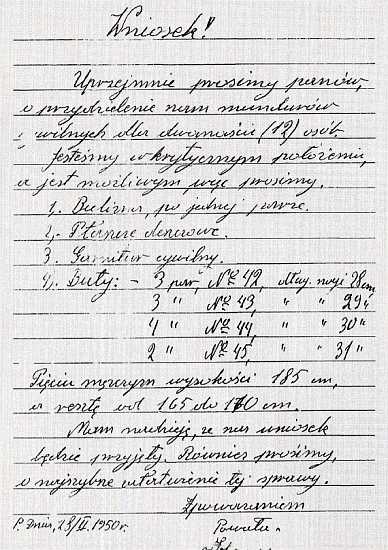 Wniosek!
Uprzejmnie prosimy panów,
o przydzielenie nam mundurów
cwilnych dla dwunaści (12) osób
Jesteśmy w krytycznym położeniu,
a jest możliwym więc prosimy.
1, Bielizna, po jednej parze.
2,- Płaszcze
3. Garnitur cywilny.
4,. Buty: - 3 par, No 42, dług. nogi 28 cm,
3 " No 43, " " 29 "
4 " No 44, " " 30 "
2 " No 45, " " 31 "
Pięciu mężczyzn wysokości 185 cm,
a resztę od 165 do 170 cm.
Mam nadzieję, że nas wniosek
będzie przyjęty. Również prosimy,
o najszybsze załatwienie tej sprawy.
Z poważaniem
P. Dnia, 23/IV. 1950 r.